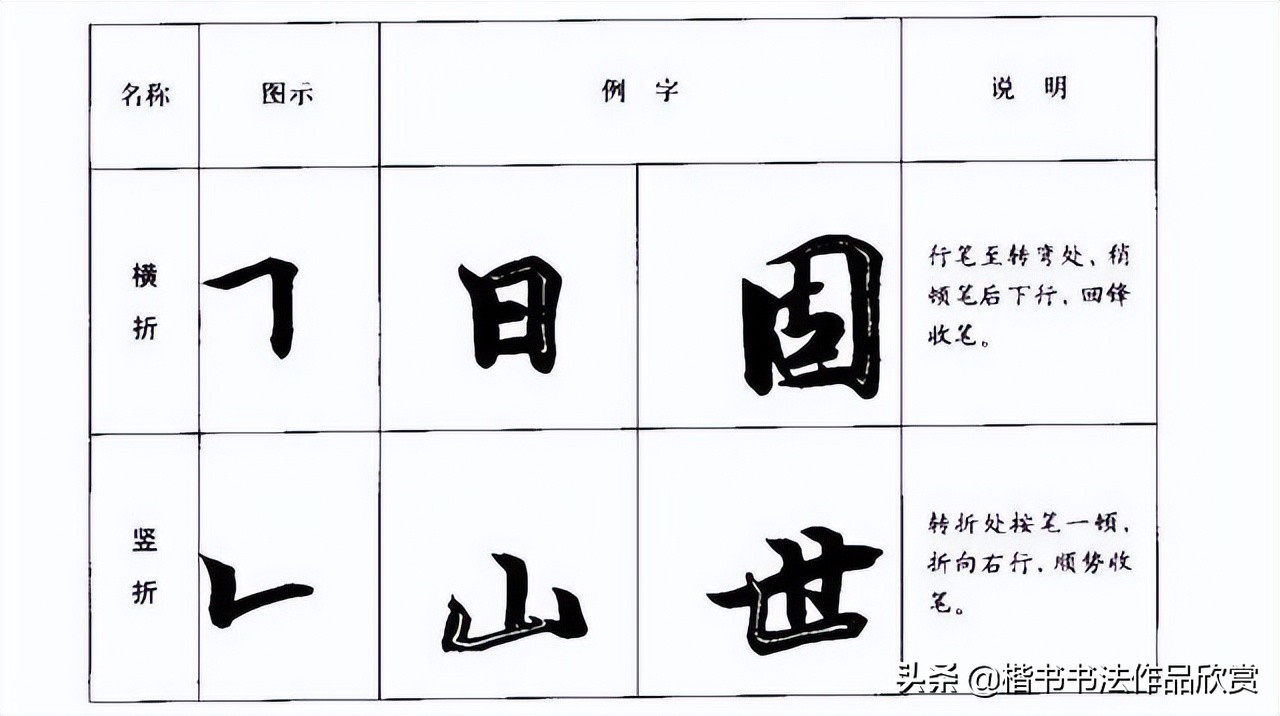 名称 图示 例字 说明
横折 ㇕ 日 固 行笔至转弯处、稍
顿笔后下行，回锋
收笔。
竖折 ㇗ 山 世 转折处按笔一顿，
折向右行，顺势收
笔。
头条 @楷书书法作品欣赏